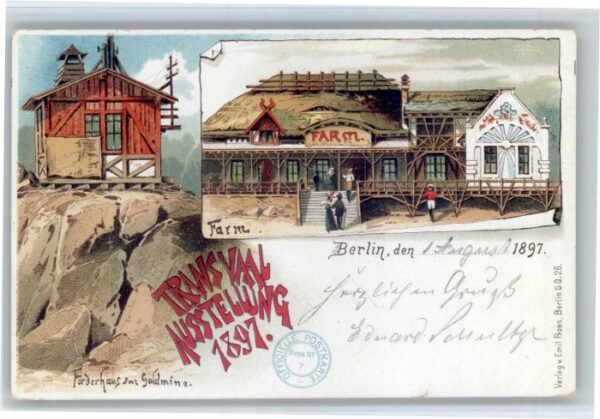 FARM.
Farm.
Berlin, den 1 August 1897.
TRANSVAAL
AUSSTELLUNG
1897.
Herzlichen Gruß
Eduard
OFFICIELLE POSTKARTE
7
Förderhaus zur Goldmine.
Verlag v. Emil Roas, Berlin S.O. 26.